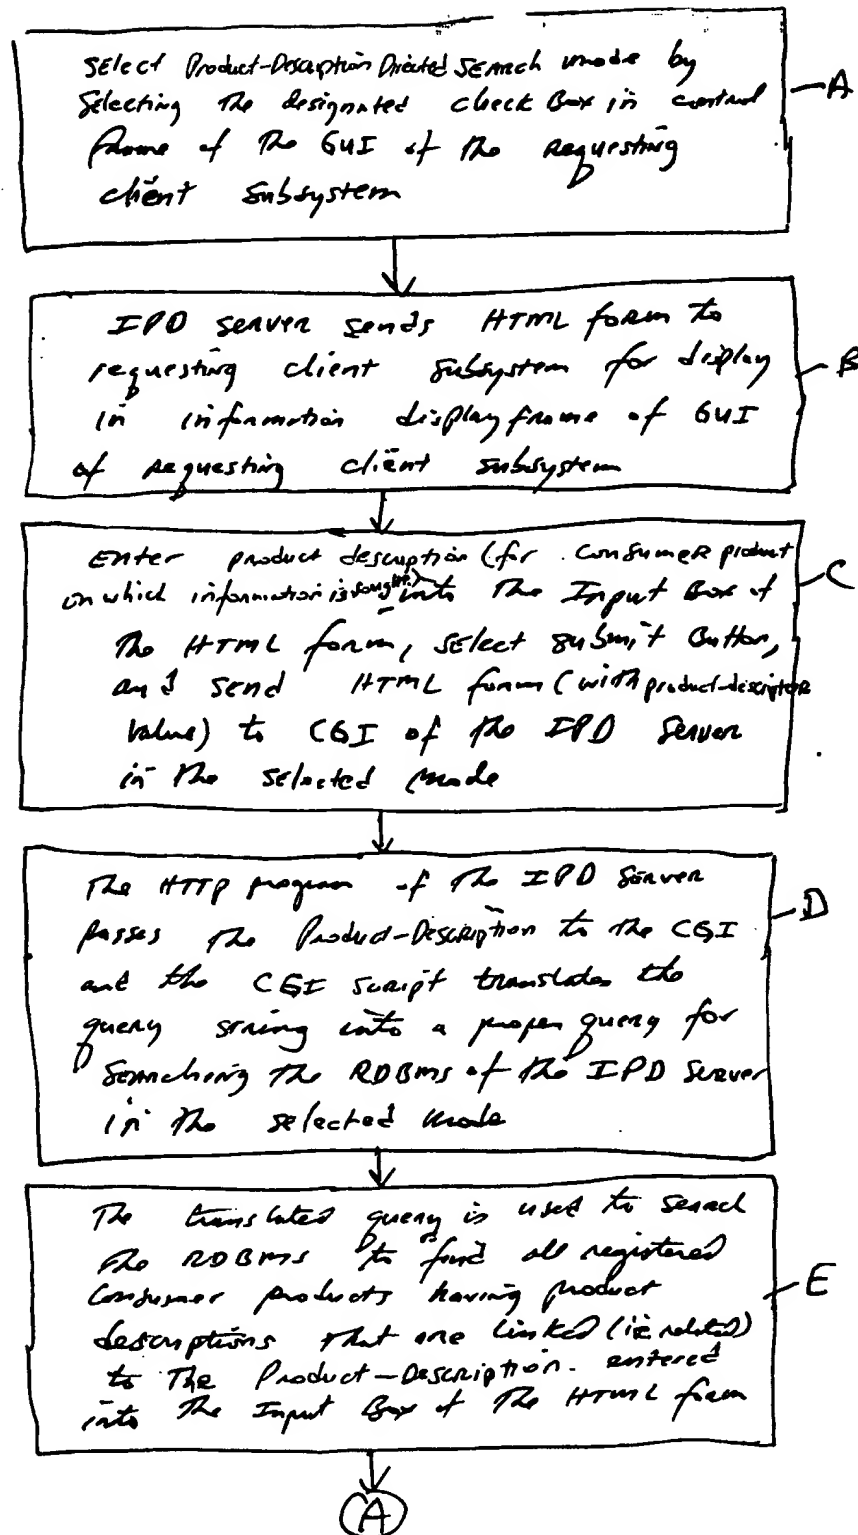 Select Product-Description Directed Search mode by
Selecting the designated check Box in control
frame of the GUI of the requesting
client subsystem
A
IPD server sends HTML form to
requesting client subsystem for display
in information display frame of GUI
of requesting client subsystem
B
Enter product description (for consumer product
on which information is sought) into the Input Box of
the HTML form, select submit Button,
and send HTML form (with product-descriptor
value) to CGI of the IPD Server
in the selected mode
C
The HTTP program of the IPD Server
passes the Product-Description to the CGI
and the CGI script translates the
query string into a proper query for
searching the RDBMS of the IPD Server
in the selected mode
D
The translated query is used to search
the RDBMS to find all registered
consumer products having product
descriptions that are linked (ie related)
to The Product-Description. entered
into The Input Box of The HTML form
E
A